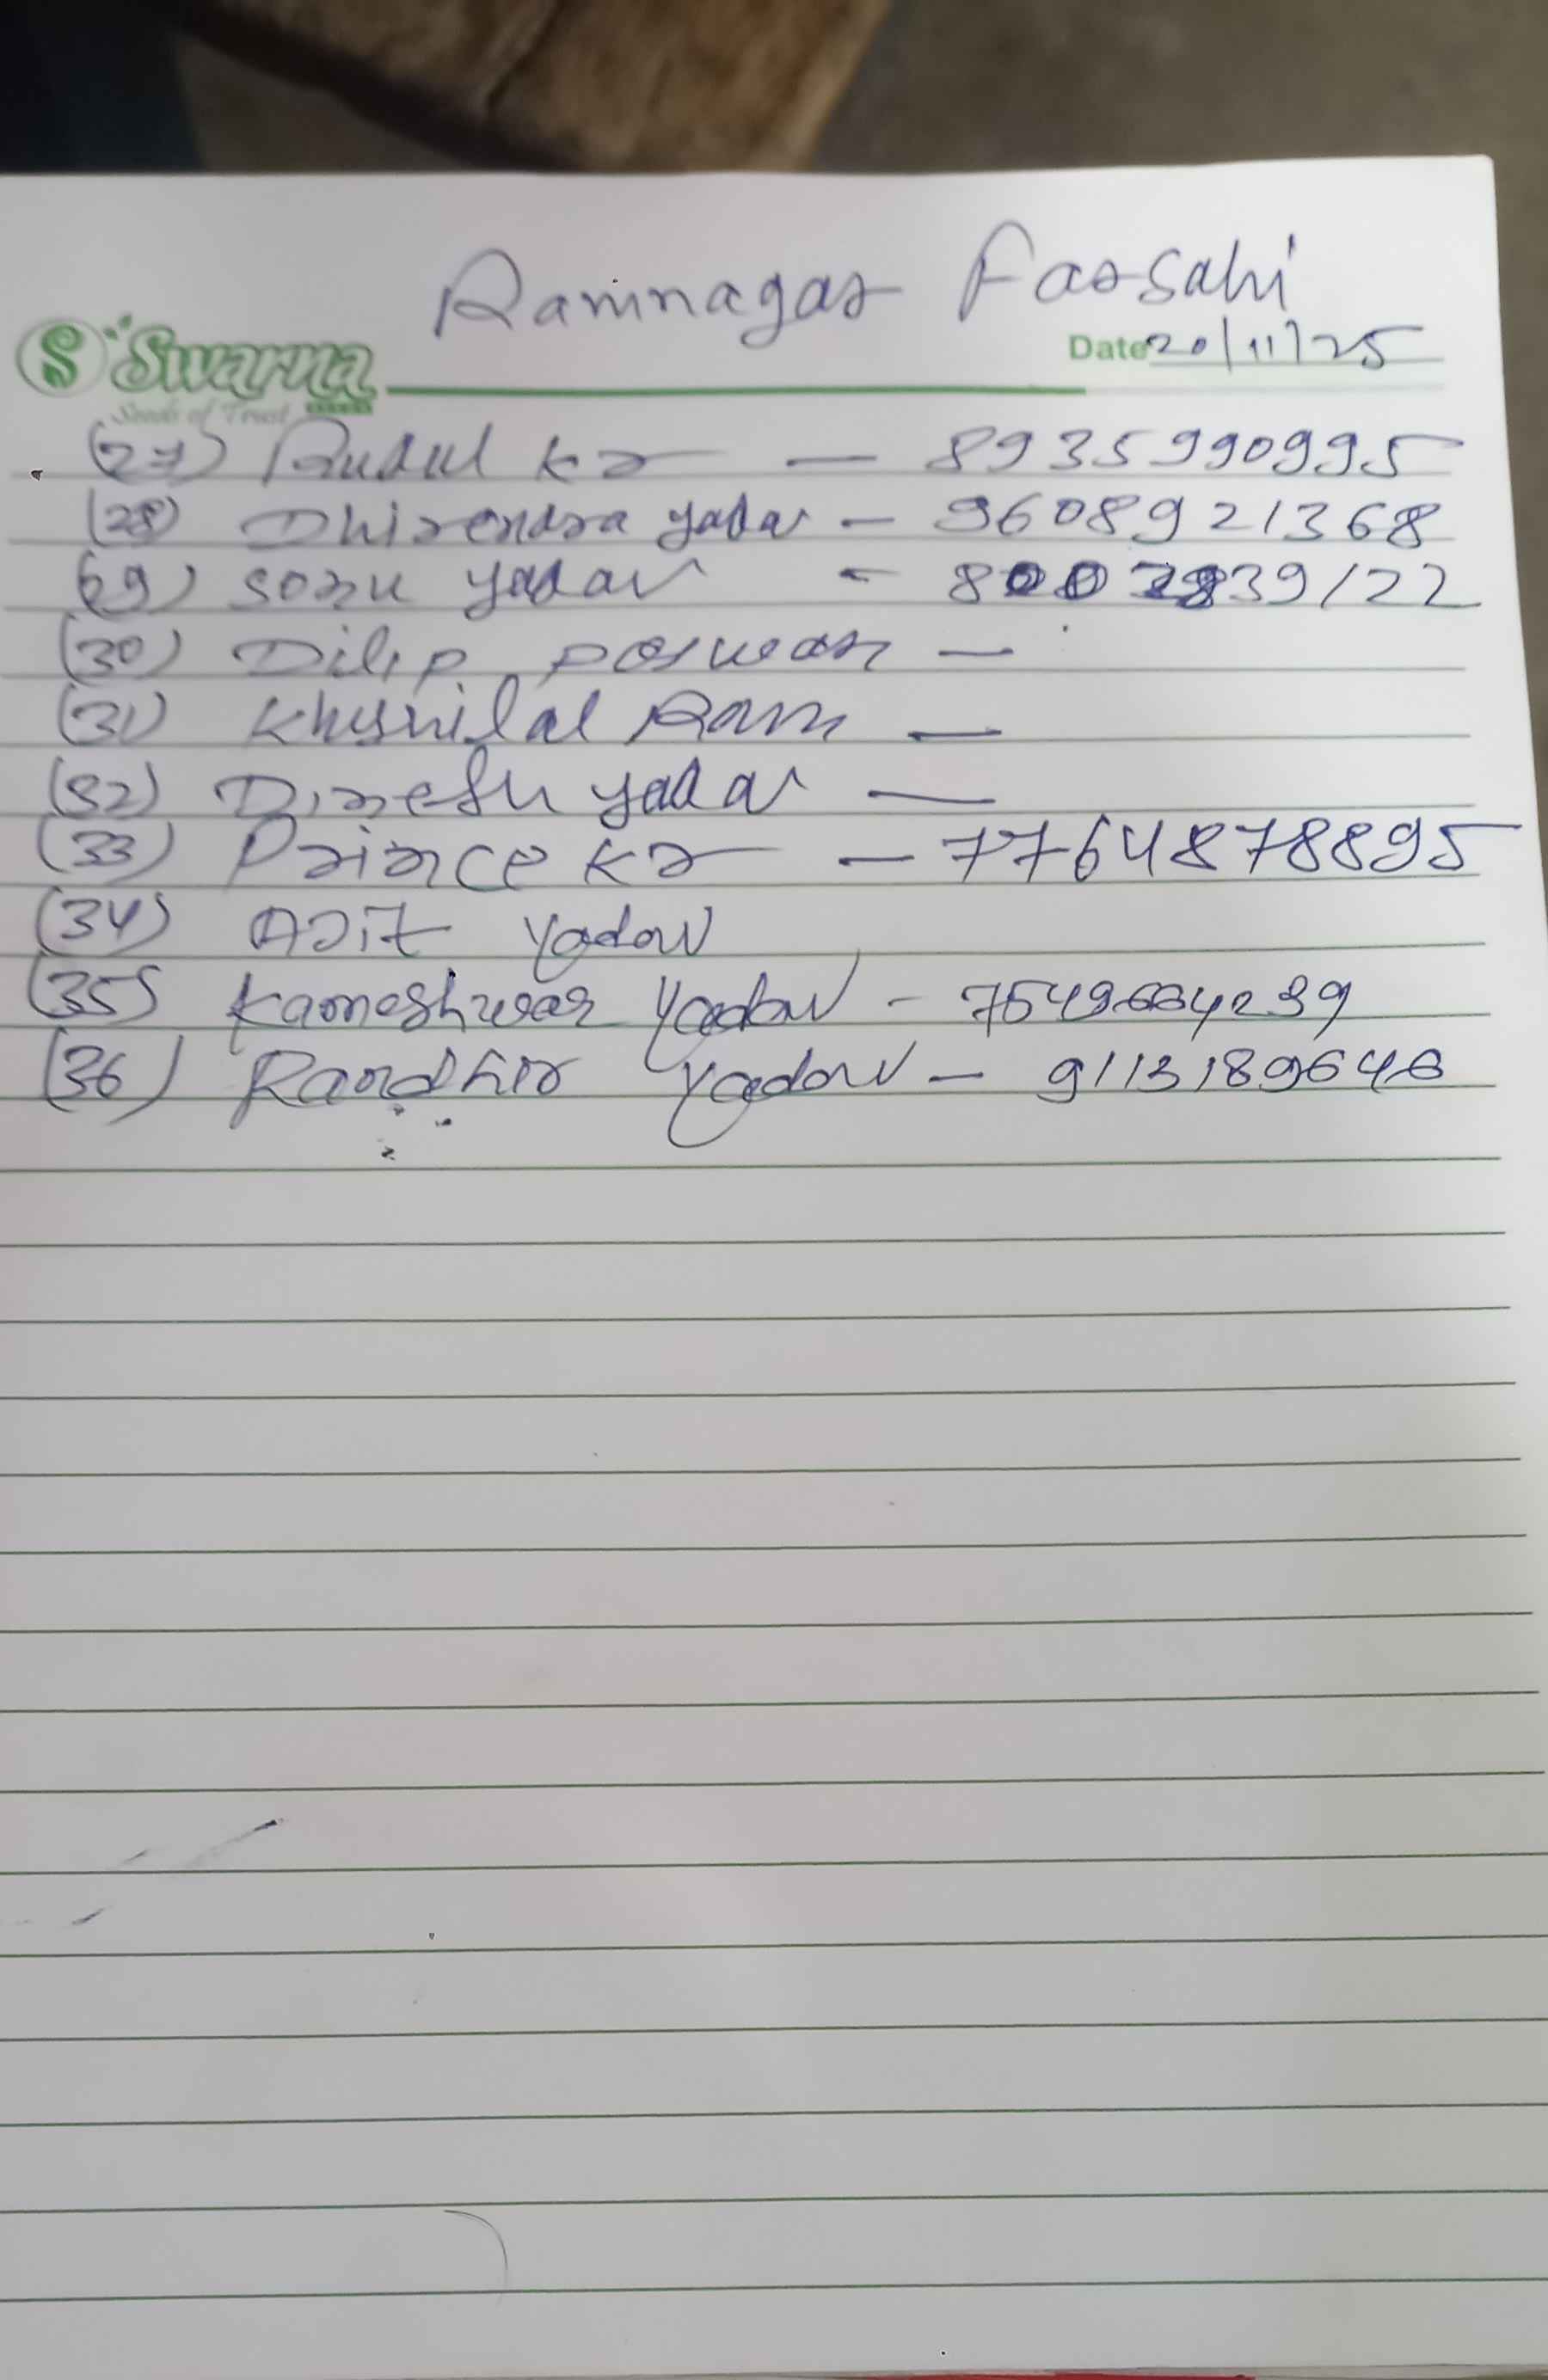 Ramnagar Farsahi
S Swarna
Seeds of Trust
Date 20/11/25
(27) Rudul Kr — 8935990995
(28) Dhirendra yadav — 9608921368
(29) sonu yadav - 839122
(30) Dilip paswan —
(31) Khusnilal Ram —
(32) Dinesh yadav —
(33) Prince Kr — 7764878895
(34) AJit Yadav
(35) Kameshwar Yadav - 7549664239
(36) Randhir Yadav — 9113189646